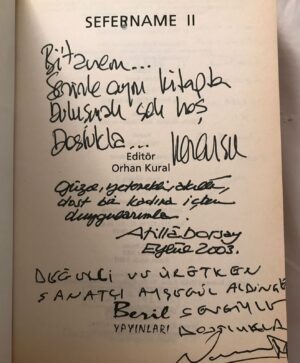 SEFERNAME II
Bitanem...
Seninle aynı kitapta
buluşmak çok hoş
Dostlukla...
Editör
Orhan Kural
Güzel, yetenekli, akıllı,
dost bir kadına içten
duygularımla.
Atillâ Dorsay
Eylül 2003.
DEĞERLİ VE ÜRETKEN
SANATÇI AYŞEGÜL ALDİNÇ'E
Beril SEVGİYLE
YAYINLARI DOSTLUKLA